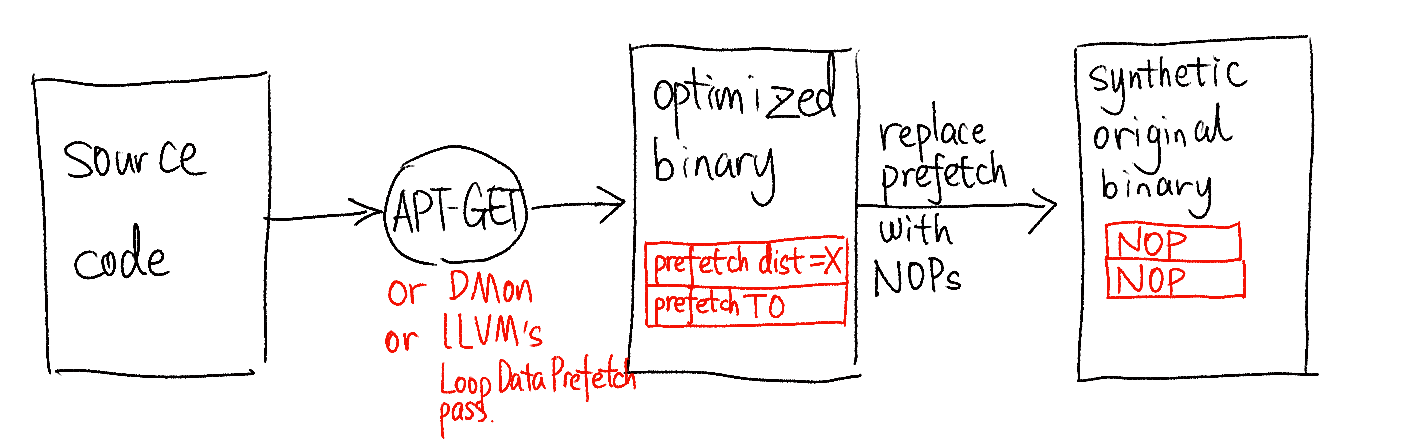 source
code
APT-GET
or DMon
or LLVM's
Loop Data Prefetch
pass.
optimized
binary
prefetch dist=X
prefetch T0
replace
prefetch
with
NOPs
synthetic
original
binary
NOP
NOP